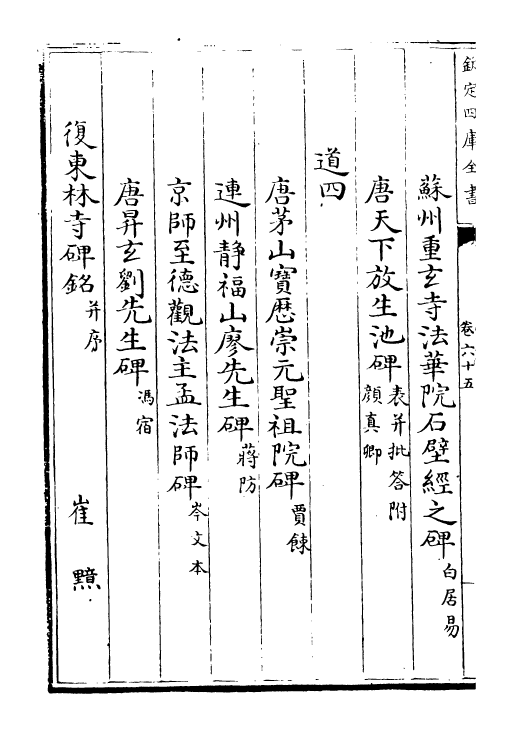 欽定四庫全書
卷六十五
蘇州重玄寺法華院石壁經之碑 白居易
唐天下放生池碑 表并批答附 顔真卿
道四
唐茅山寶歴崇元聖祖院碑 賈餗
連州靜福山廖先生碑 蔣防
京師至德觀法主孟法師碑 岑文本
唐昇玄劉先生碑 馮宿
復東林寺碑銘 并序 崔黯